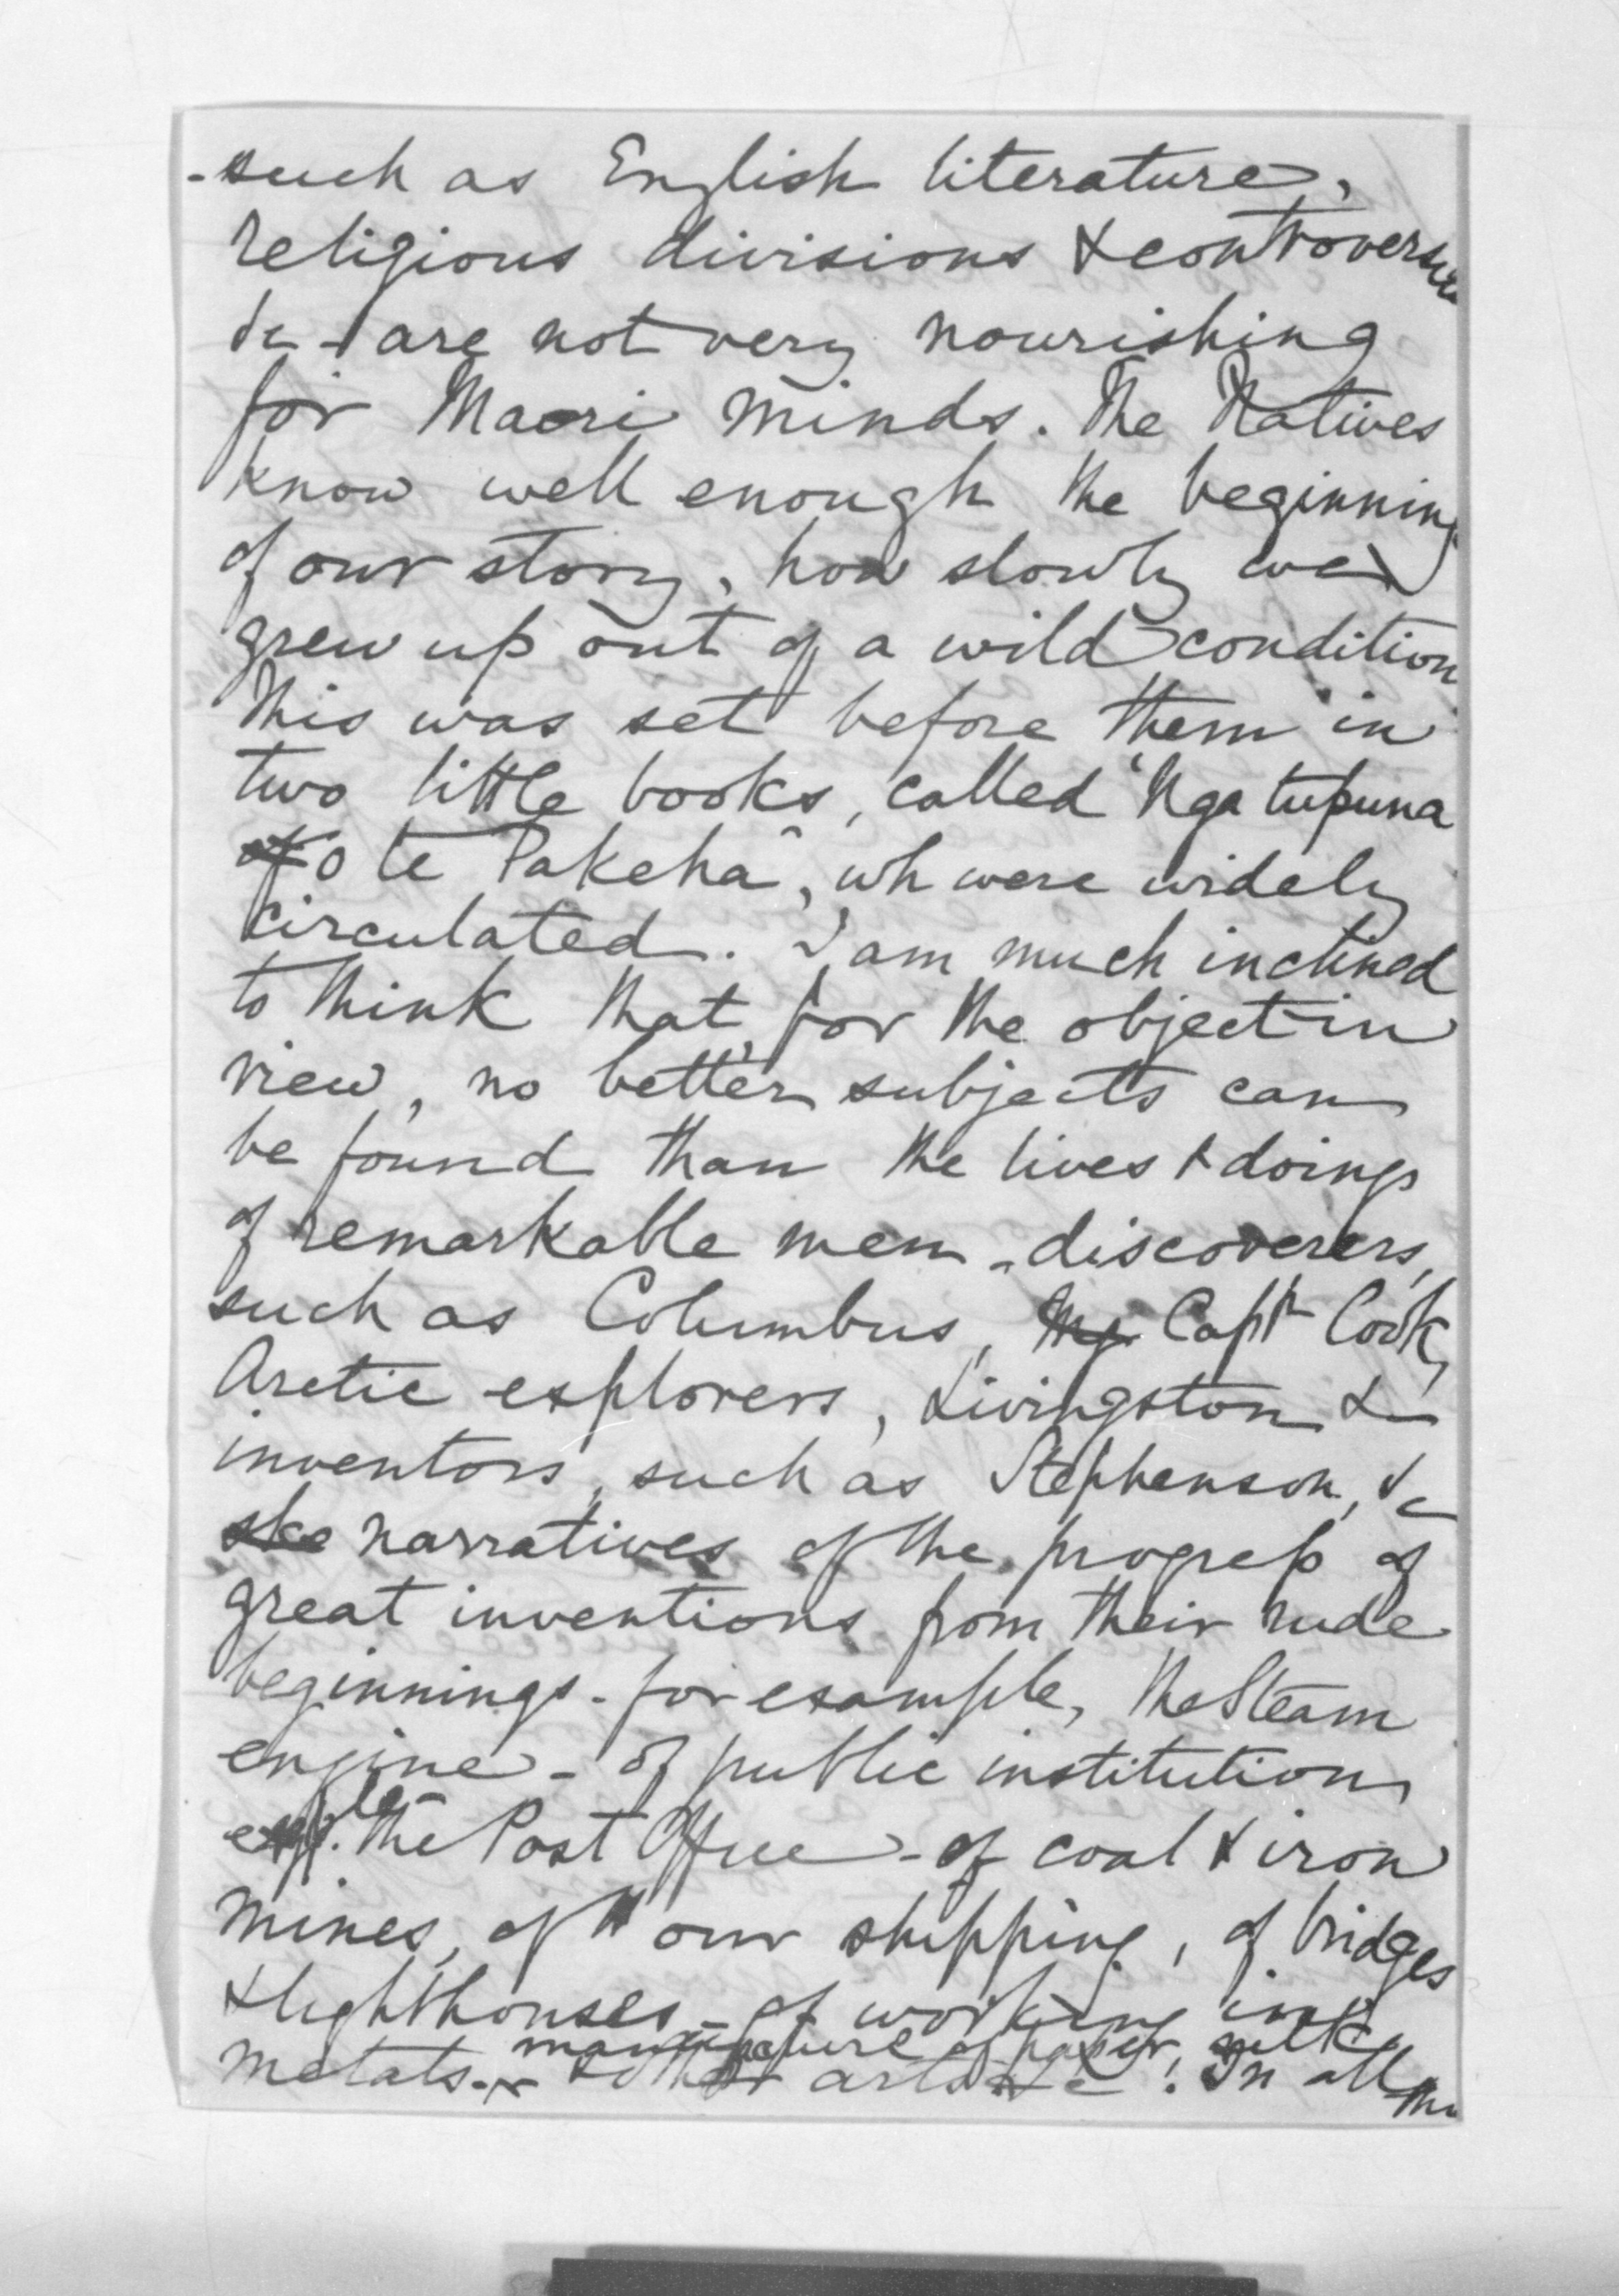 -such as English literature,
religious divisions & controversies
&c - are not very nourishing
for Maori minds. The Natives
know well enough the beginning
of our story, how slowly we
grew up out of a wild condition
This was set before them in
two little books, called "Nga tupuna
o te Pakeha", wh were widely
circulated. I am much inclined
to think that, for the object in
view, no better subjects can
be found than the lives & doings
of remarkable men - discoverers,
such as Columbus, Captn Cook,
Arctic explorers, Livingston &
inventors, such as Stephenson, &c
narratives of the progress of
great inventions from their rude
beginnings - for example, the Steam
engine - of public institutions
the Post Office - of coal & iron
mines, of our shipping, of bridges
& lighthouses - of working in
manufacture of paper, silk
metals - & other arts &c. In all the